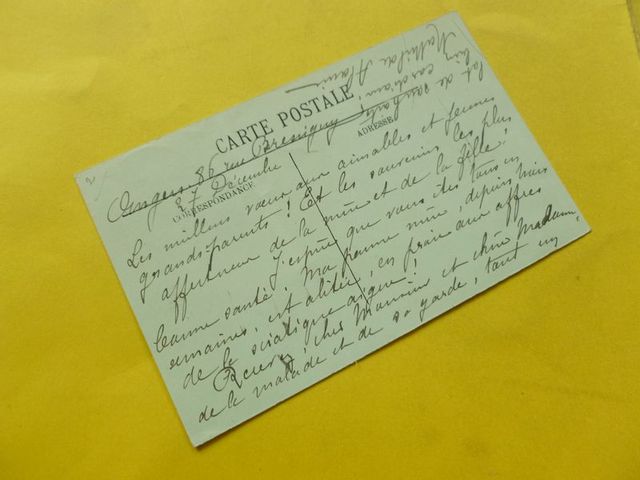 CARTE POSTALE
CORRESPONDANCE
ADRESSE
Angers, 86 rue Bressigny
27 Décembre
Les meilleurs vœux aux aimables et jeunes
grands-parents ! Et les souvenirs les plus
affectueux de la mère et de la fille !
J'espère que vous êtes tous en
bonne santé. Ma pauvre mère, depuis trois
semaines, est alitée, en proie aux affres
de la sciatique aigue !
Recevez, cher Monsieur et chère Madame,
de la malade et de sa garde, tant en
lot de souhaits
bien cordiaux !
Mathilde Alanic